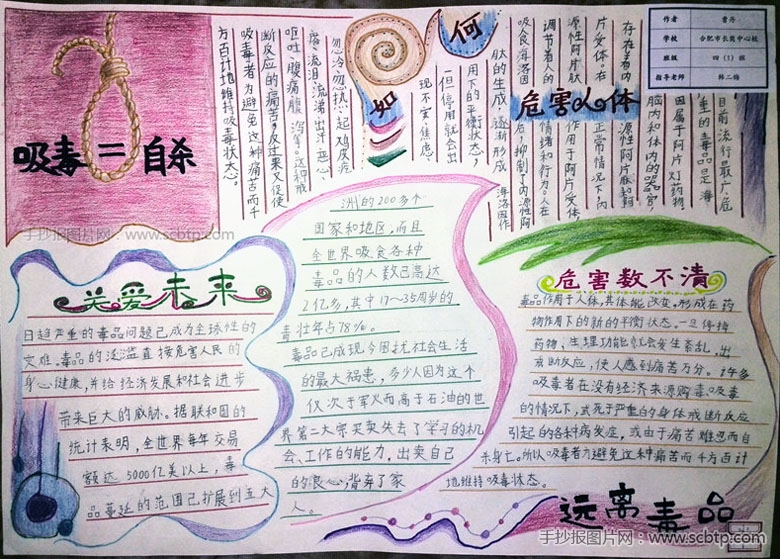 吸毒=自杀
如
何
危害人体
作者 曹丹
学校 合肥市长岗中心校
班级 四（1）班
指导老师 林二梅
目前流行最广、危
害严重的毒品是海
洛因，海洛因属于阿片灯药物
在正常情况下
脑内和体内的器官，
存在着内源性阿片肽和阿
片受体。在正常情况下内
源性阿片肽作用于阿片受体，
调节着人的情绪和行为。人在
吸食海洛因后，抑制了内源性阿
肽的生成，逐渐形成
在海洛因作
用下的平衡状态，
一旦停用就会出
现不安、焦虑、
忽冷忽热、起鸡皮疙
瘩、流泪、流涕、出汗、恶心、
呕吐、腹痛腹泻等。这种戒
断反应的痛苦，反过来又促使
吸毒者为避免这种痛苦而千
方百计地维持吸毒状态。
手抄报图片网：www.scbtp.com
关爱未来
日趋严重的毒品问题已成为全球性的
灾难，毒品的泛滥直接危害人民的
身心健康，并给经济发展和社会进步
带来巨大的威胁。据联和国的
统计表明，全世界每年交易
额达5000亿美以上，毒
品蔓延的范围已扩展到五大
洲的200多个
国家和地区，而且
全世界吸食各种
毒品的人数已高达
2亿多，其中17～35周岁的
青壮年占78%。
毒品已成现今困扰社会生活
的最大祸患，多少人因为这个
仅次于军火而高于石油的世
界第二大宗买卖失去了学习的机
会、工作的能力，出卖自己
的良心，背弃了家
人。
危害数不清
毒品作用于人体，具体能改变，形成在药
物作用下的新的平衡状态。一旦停掉
药物，生理功能就会发生紊乱，出
示断反应，使人感到痛苦万分。许多
吸毒者在没有经济来源购毒、吸毒
的情况下，或死于严重的身体戒断反应
引起的各种病发症，或由于痛苦难忍而自
杀身亡。所以吸毒者为避免这种痛苦而千方百计
地维持吸毒状态。
远离毒品
手抄报图片网：www.scbtp.com